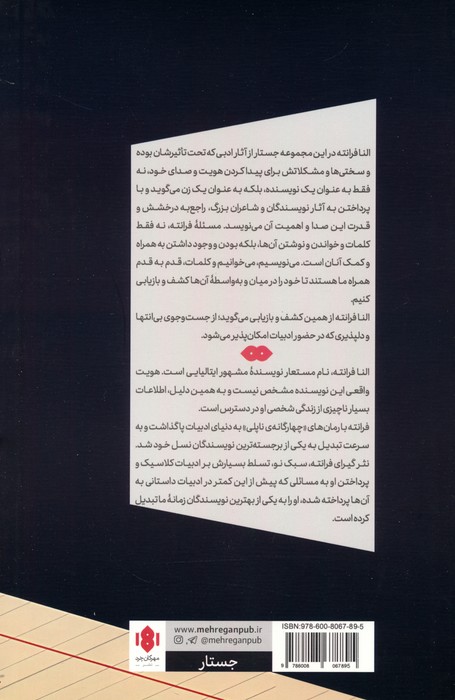 النا فرانته در این مجموعه جستار از آثار ادبی که تحت تأثیرشان بوده
و سختی‌ها و مشکلاتش برای پیدا کردن هویت و صدای خود، نه
فقط به عنوان یک نویسنده، بلکه به عنوان یک زن می‌گوید و با
پرداختن به آثار نویسندگان و شاعران بزرگ، راجع‌به درخشش و
قدرت این صدا و اهمیت آن می‌نویسد. مسئلهٔ فرانته، نه فقط
کلمات و خواندن و نوشتن آن‌ها، بلکه بودن و وجود داشتن به همراه
و کمک آنان است. می‌نویسیم، می‌خوانیم و کلمات، قدم به قدم
همراه ما هستند تا خود را در میان و به‌واسطهٔ آن‌ها کشف و بازیابی
کنیم.
النا فرانته از همین کشف و بازیابی می‌گوید؛ از جست‌وجوی بی‌انتها
و دلپذیری که در حضور ادبیات امکان‌پذیر می‌شود.
النا فرانته، نام مستعار نویسندهٔ مشهور ایتالیایی است. هویت
واقعی این نویسنده مشخص نیست و به همین دلیل، اطلاعات
بسیار ناچیزی از زندگی شخصی او در دسترس است.
فرانته با رمان‌های «چهارگانه‌ی ناپلی» به دنیای ادبیات پا گذاشت و به
سرعت تبدیل به یکی از برجسته‌ترین نویسندگان نسل خود شد.
نثر گیرای فرانته، سبک نو، تسلط بسیارش بر ادبیات کلاسیک و
پرداختن او به مسائلی که پیش از این کمتر در ادبیات داستانی به
آن‌ها پرداخته شده، او را به یکی از بهترین نویسندگان زمانهٔ ما تبدیل
کرده است.
مهرگان خرد
www.mehreganpub.ir
@mehreganpub
جستار
ISBN: 978-600-8067-89-5
9 786008 067895